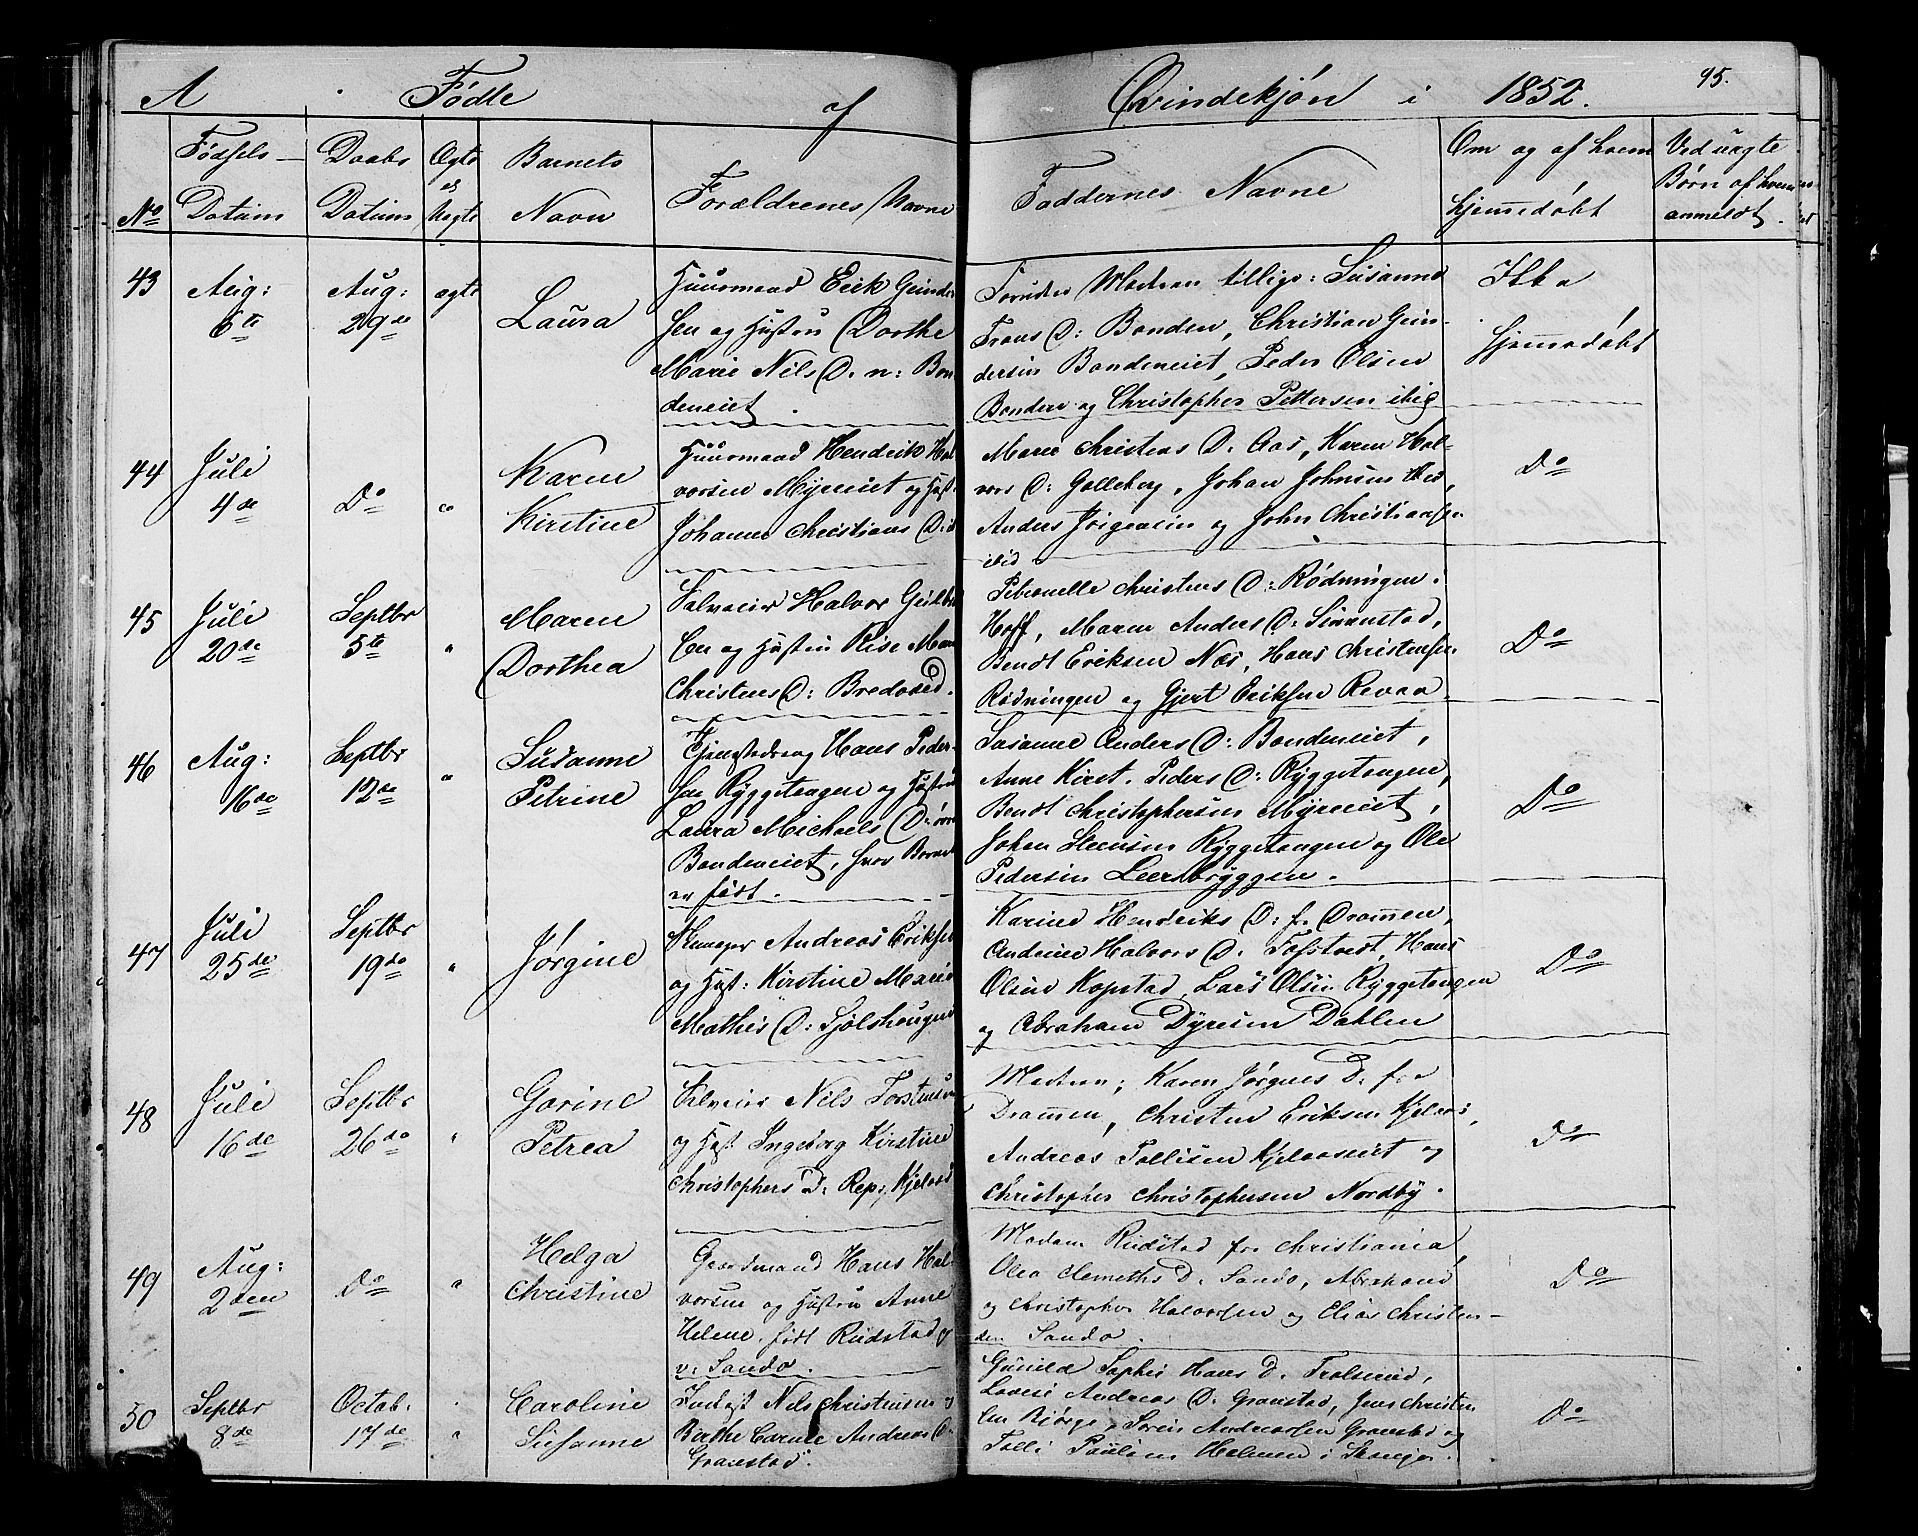 A Fødte af Qvindekjøn i 1852. 95.
No
Fødsels Datum
Daabs Datum
Ægte el Uægte
Barnets Navn
Forældrenes Navne
Faddernes Navne
Om og af hvem hjemmedøbt
Ved uægte Børn af hvem anmeldt
43
Aug: 6te
Aug: 29de
ægte
Laura
Huusmand Erik Gunder
sen og Hustru Dorthe
Marie Nils D. n: Bon
deneiet.
Madsen tillige: Susanne
Frans D: Bonden, Christian Gun-
dersen Bondeneiet, Peder Olsen
Bonden og Christopher Pettersen ibid
Ikke
hjemmedøbt
44
Juli 4de
Do
Karen
Kirstine
Huusmand Hendrik Hal
vorsen Myreneiet og Hust.
Johanne Christians D:
Maren Christens D. Aas, Karen Hal-
vors D: Golleberg, Johan Johnsen
Anders Jørgensen og John Christiansen
ibid
Do
45
Juli 20de
Septbr 5te
Maren
Dorthea
Selveier Halvor
sen og Hustru Lise
Christens D: Bredved.
Petronelle Christens D: Rødningen i
Hoff, Maren Anders D: Simenstad,
Bendt Eriksen Næs, Hans Christensen
Rødningen og Gjert Eriksen Revaa
Do
46
Aug: 16de
Septbr 12de
Susanne
Petrine
Hans Peder-
sen Ryggetangen og Hustru
Laura Michaels D:
Bondeneiet, hvor Barnet
er født.
Susanne Anders D: Bondeneiet,
Anne Kirst. Peders D: Ryggetangen,
Bendt Christophersen Myreneiet,
Johan Ryggetangen og Ole
Pedersen Leersbryggen.
Do
47
Juli 25de
Septbr 19de
Jørgine
Andreas Eriksen
og Hust: Kirstine Marie
Mathis D: Fjølshougen
Karine Hendriks D: f. Drammen,
Andrine Halvors D. Tofstvedt, Hans
Olsen Kopstad, Lars Olsen Ryggetangen
og Abraham Dyresen Dahlen
Do
48
Juli 16de
Septbr 26de
Gorine
Petrea
Selveier Nils Torstensen
og Hust Ingeborg Kirstine
Christophers D. Rep: Kjelaas
Madsen; Karen Jørgens D. fra
Drammen, Christen Eriksen Kjelaas,
Andreas Tollisen Kjelaaseiet og
Christopher Christophersen Nordby.
Do
49
Aug: 2den
Do
Helga
Christine
Gaardmand Hans Hal-
vorsen og Hustru Anne
Helene født Rudstad
v: Sando.
Madam Rudstad fra Christiania,
Olea Clemeths D. Sando, Abraham
og Christopher Halvorsen og Elias Christen-
sen Sando.
Do
50
Septbr 8de
Octob. 17de
Caroline
Susanne
Nils Christensen og
Berthe Carine Andreas D.
Granstad.
Gunild Sophie Hans D. Trolsrud,
Lovise Andreas D. Granstad, Jens Christen
sen Bjørge, Søren Andreassen Granstad og
Tolli Paulsen Holmen i Skouger.
Do